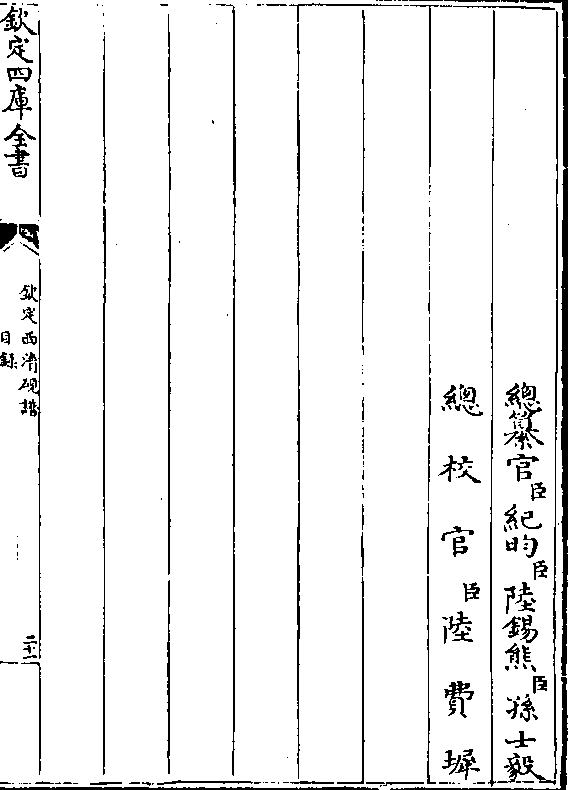 總纂官臣紀昀臣陸錫熊臣孫士毅
總校官臣陸費墀
欽定四庫全書
欽定西清硯譜
目録
二十一